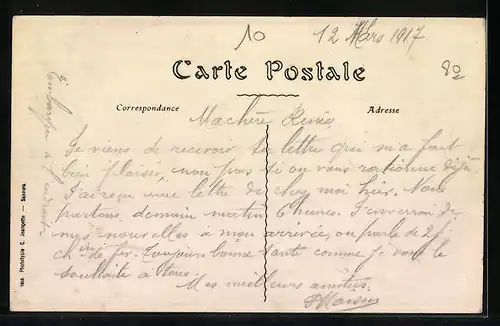 10
12 Mars 1917
Carte Postale
80
Correspondance
Adresse
Ma chère Renée
Je viens de recevoir ta lettre qui m'a fait
bien plaisir, non pas si on vous rationne déjà
J'ai reçu une lettre de chez moi hier. Nous
partons demain matin 6 heures. J'enverrai de
mes nouvelles à mon arrivée, on parle de 2 j
ch de fer. Toujours bonne santé comme je vous le
souhaite à tous.
Mes meilleurs amitiés
Imp. Phototypie C. Jeangette